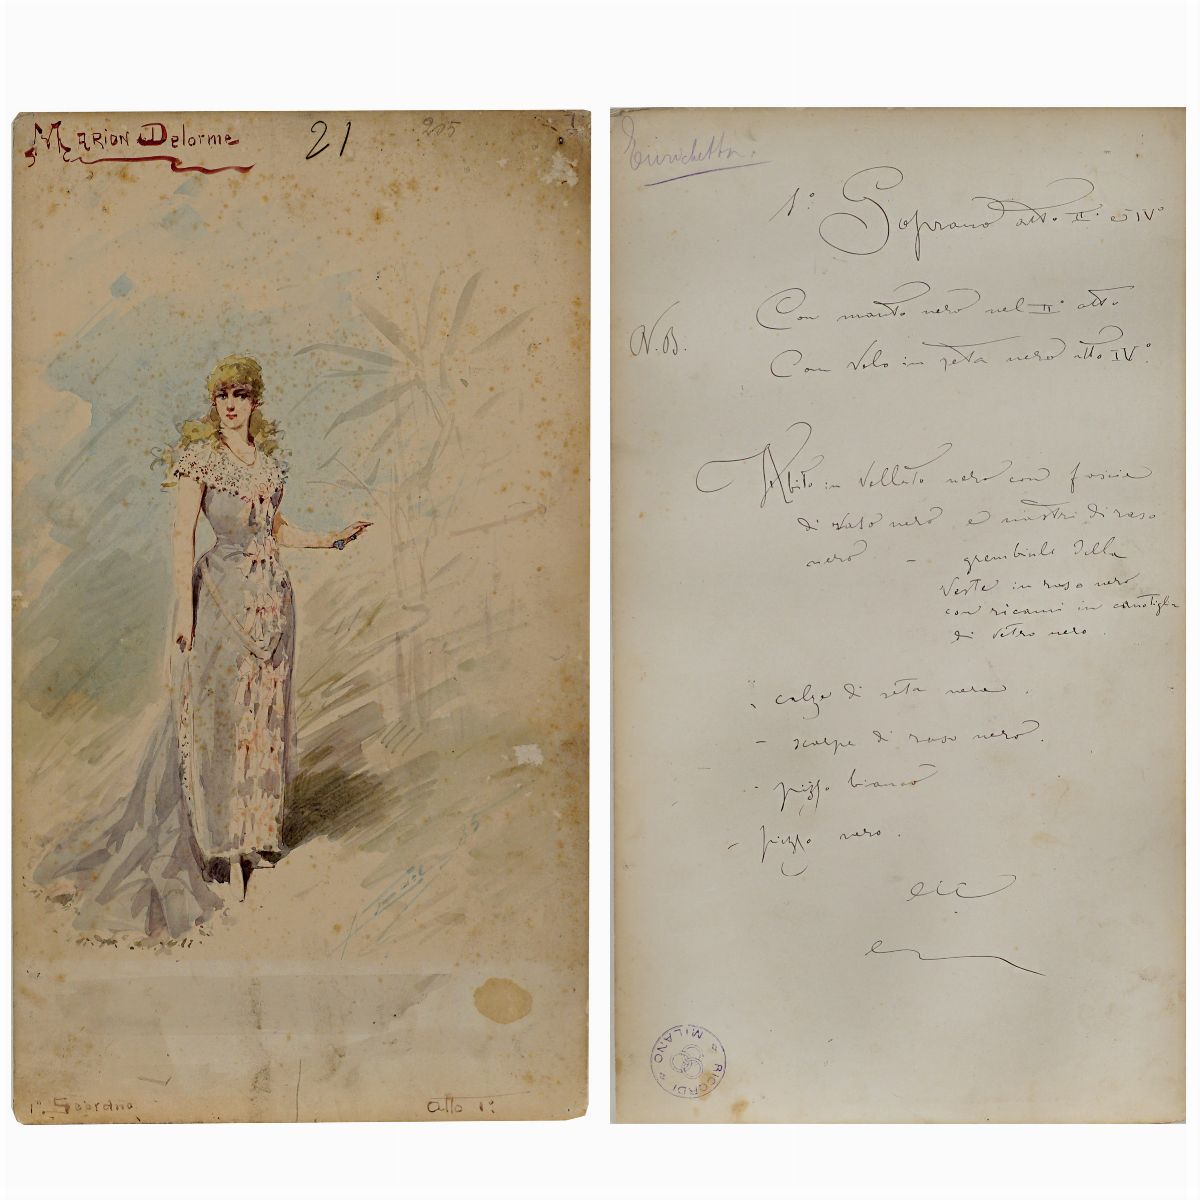 Marion Delorme
21
205
1º Soprano
Atto 1º
Enrichetta.
1º Soprano atto II.º e IVº
N.B.
Con manto nero nel IIº atto
Con velo in seta nero atto IVº.
Abito in velluto nero con fascie
di raso nero e nastri di raso
nero - grembiule della
veste in raso nero
con ricami in canotiglia
di vetro nero.
- calze di seta nera.
- scarpe di raso nero.
- pizzo bianco
- pizzo nero.
RICORDI
MILANO